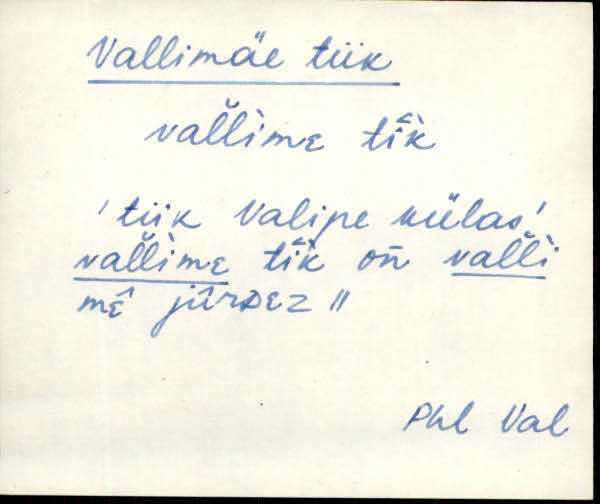 Vallimäe tiik
val̆l̀ime tî̆k
'tiik Valipe külas'
val̆l̀ime tî̆k on̄ val̆l̀i
mɛ̂ jûrᴅez ॥
Phl Val